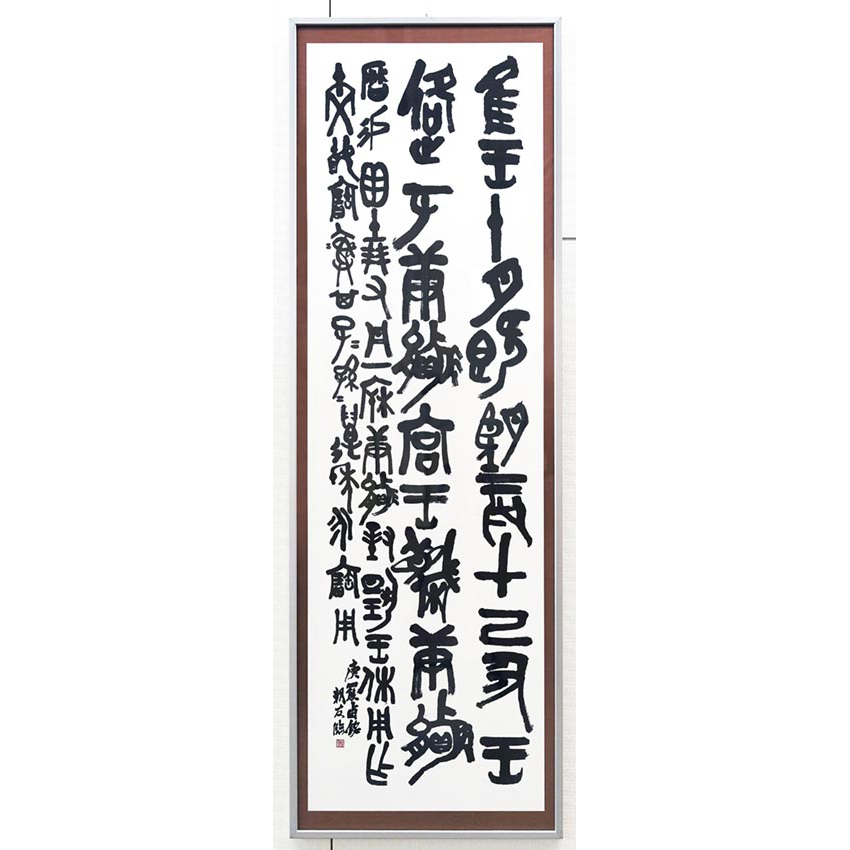 隹王十月既望辰才己丑王
于庚嬴宮王蔑庚嬴
曆易貝十朋又丹一庚嬴對揚王休用乍
文姑寶彝其子〻孫〻萬年永寶用
庚嬴卣銘
友臨